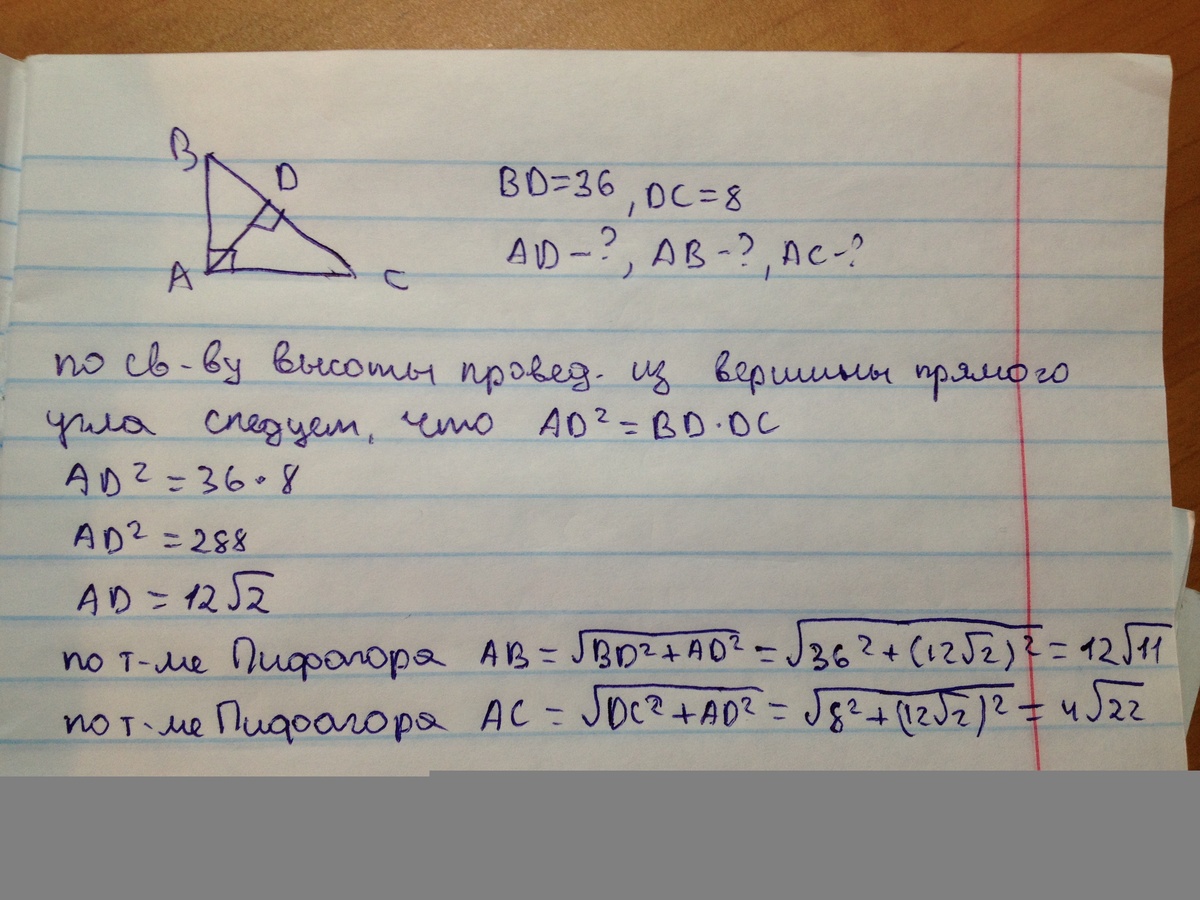 B
D
A
C
BD=36, DC=8
AD-?, AB-?, AC-?
по св-ву высоты провед. из вершины прямого
угла следует, что AD² = BD·DC
AD² = 36·8
AD² = 288
AD = 12√2
по т-ме Пифагора AB = √(BD²+AD²) = √(36²+(12√2)²) = 12√11
по т-ме Пифагора AC = √(DC²+AD²) = √(8²+(12√2)²) = 4√22